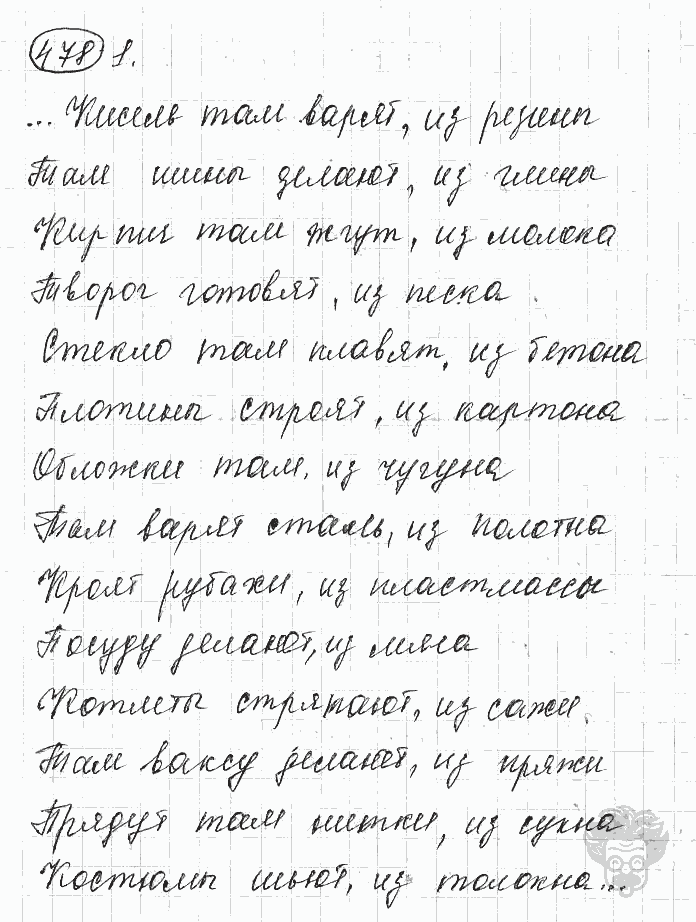 478 1.
... Кисель там варят, из резины
Там шины делают, из глины
Кирпич там жгут, из молока
Творог готовят, из песка
Стекло там плавят, из бетона
Плотины строят, из картона
Обложки там, из чугуна
Там варят сталь, из полотна
Кроят рубахи, из пластмассы
Посуду делают, из мяса
Котлеты стряпают, из сажи
Там ваксу делают, из пряжи
Прядут там нитки, из сукна
Костюмы шьют, из толокна...